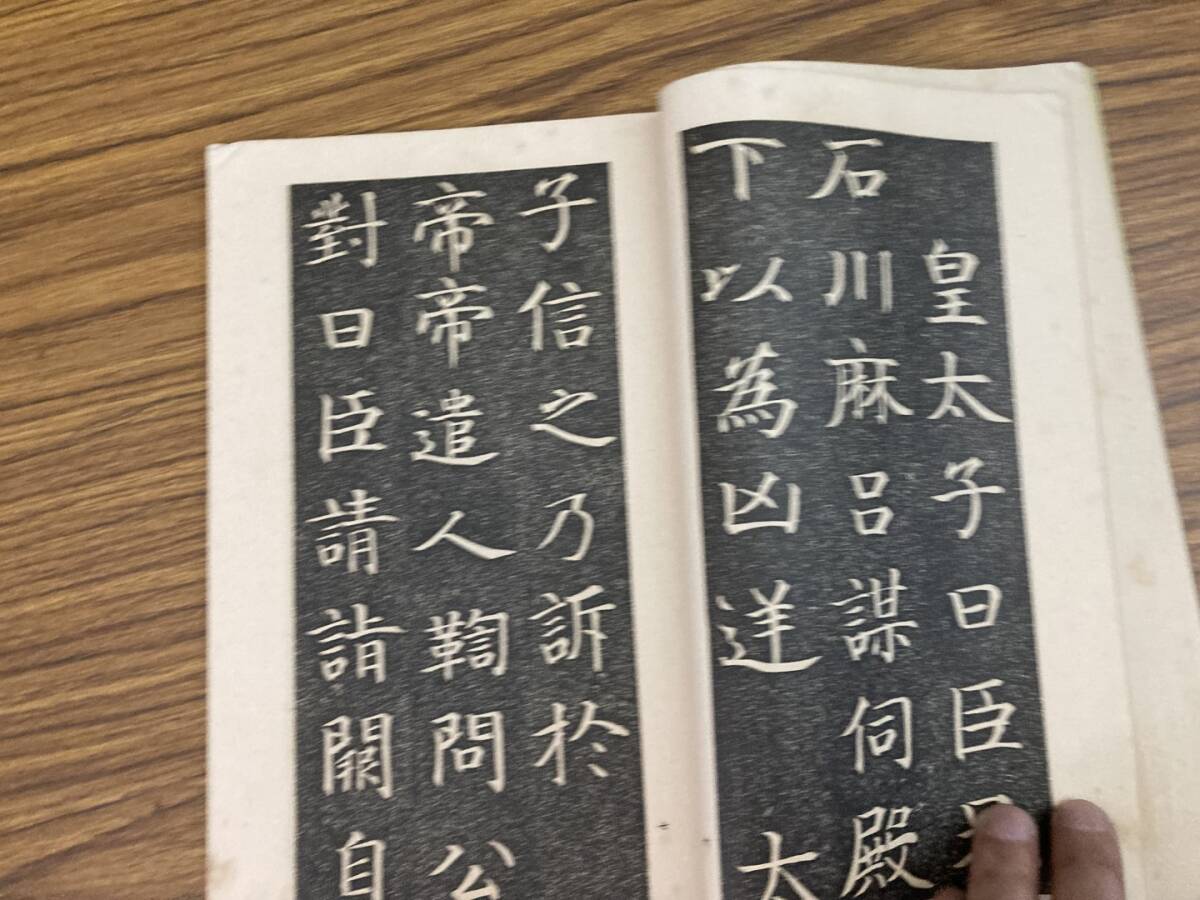 皇太子曰臣
石川麻呂謀伺殿
下以為凶逆太
子信之乃訴於
帝帝遣人鞫問公
對曰臣請詣闕自